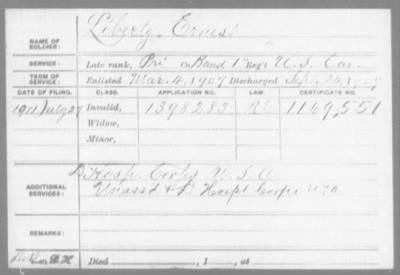 NAME OF SOLDIER: Liberty, Ernest
SERVICE: Late rank, Pri on Band 1" Reg't U.S. Cav.
TERM OF SERVICE: Enlisted Mar. 4, 1907 Discharged Sep. 1907
DATE OF FILING. CLASS. APPLICATION NO. LAW. CERTIFICATE NO.
1911 July 27 Invalid, 1398283 1169,551
Widow,
Minor,
ADDITIONAL SERVICES: Hosp. Corps U.S.A
Unass'd & Hosp'l Corps USA
REMARKS:
Died , 1 , at